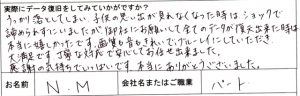 実際にデータ復旧をしてみていかがですか?
うっかり落としてしまい、子供の思い出が見れなくなった時はショックで
諦められずにいましたが、御社にお願いして全てのデータが復元出来た時は
本当に嬉しかったです。画質も音もきれいでグレイにしていただき
大満足です。丁寧な対応で安心してお任せ出来ました。
感謝の気持ちでいっぱいです。本当にありがとうございました。
お名前 N.M 会社名またはご職業 パート